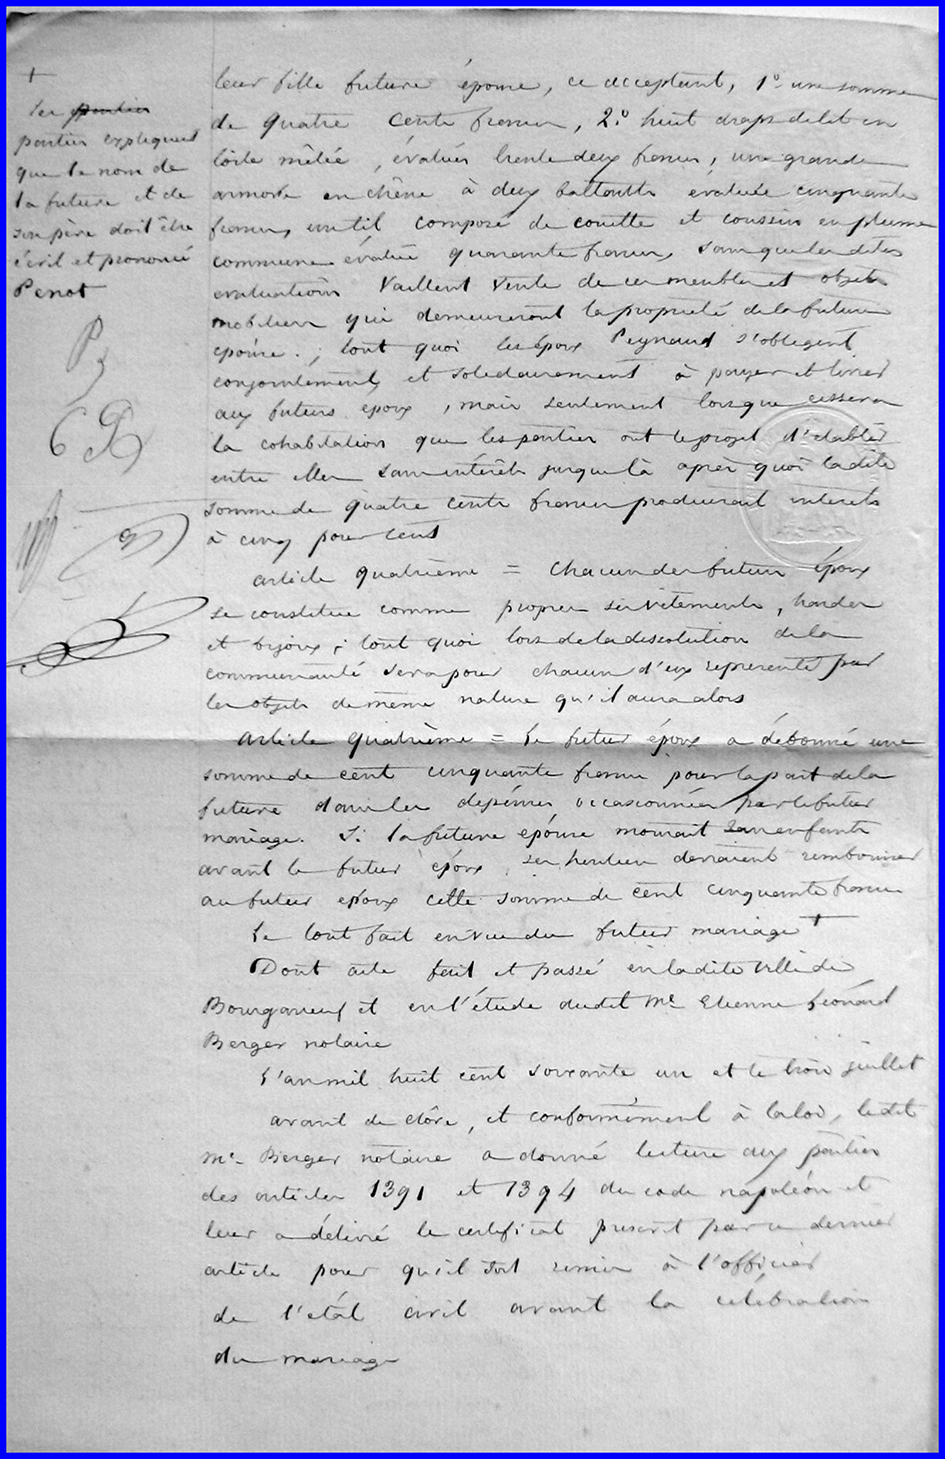 +
les parties
parties expliquent
que le nom de
la future et de
son père doit être
écrit et prononcé
Penot
leur fille future épouse, ce acceptant, 1° une somme
de quatre cents francs, 2° huit draps de lit en
toile mêlée, évalués trente deux francs, une grande
armoire en chêne à deux battants évaluée cinquante
francs, un lit composé de couette et coussin en plume
commune évalué quarante francs, sans que les dites
evaluations vaillent vente de ces meubles et objets
mobiliers qui demeureront la propriété de la future
épouse ; tout quoi les époux Peynaud s'obligent
conjointement et solidairement à payer et livrer
aux futurs epoux, mais seulement lorsque cessera
la cohabitation que les parties ont le projet d'etablir
entre elles sans intérêts jusque là après quoi la dite
somme de quatre cents francs produirait interets
à cinq pour cent
article quatrième = chacun des futurs époux
se constitue comme propres ses vêtements, hardes
et bijoux ; tout quoi lors de la dissolution de la
communauté sera pour chacun d'eux representé par
les objets de même nature qu'il aura alors
article quatrième = le futur époux a débourné une
somme de cent cinquante francs pour la part de la
future dans les dépenses occasionnées par le futur
mariage. Si la future epouse mourait sans enfants
avant le futur époux, ses heritiers devraient rembourser
au futur epoux cette somme de cent cinquante francs
Le tout fait en vue du futur mariage +
Dont acte fait et passé en la dite ville de
Bourganeuf et en l'étude dudit Me Etienne Léonard
Berger notaire
L'an mil huit cent soixante un et le trois juillet
avant de clôre, et conformément à la loi, ledit
Me Berger notaire a donné lecture aux parties
des articles 1391 et 1394 du code napoléon et
leur a délivré le certificat prescrit par ce dernier
article pour qu'il soit remis à l'officier
de l'état civil avant la célébration
du mariage